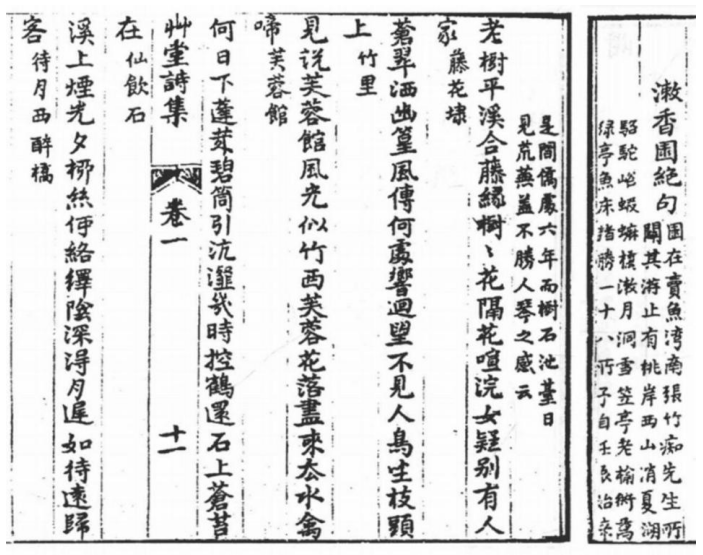 漱香圃絶句
圃在賣魚湾南張竹痴先生所
闢其游止有桃岸西山消夏湖
駱駝蝦蟆漱月洞雪笠亭老榆榭萬
緑亭魚床諸勝一十八所予自壬辰治
是間僑處六年而樹石池臺日
見荒蕪蓋不勝人琴之感云
老樹平溪合藤縁樹〻花隔花喧浣女疑别有人
家 藤花埭
蒼翠洒幽篁風傳何處響迴望不見人鳥坐枝頭
上 竹里
見説芙蓉館風光似竹西芙蓉花落盡來去水禽
啼 芙蓉館
何日下蓬萊碧筩引沆瀣幾時控鶴還石上蒼苔
艸堂詩集 卷一 十一
在 仙飲石
溪上煙光夕栁絲何絡繹陰深淂月遲如待遠歸
客 待月西醉橋